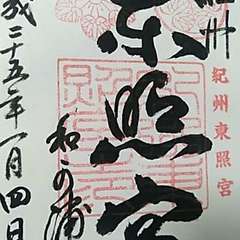 紀州東照宮
州
東照宮
和の浦
成二十五年一月四日